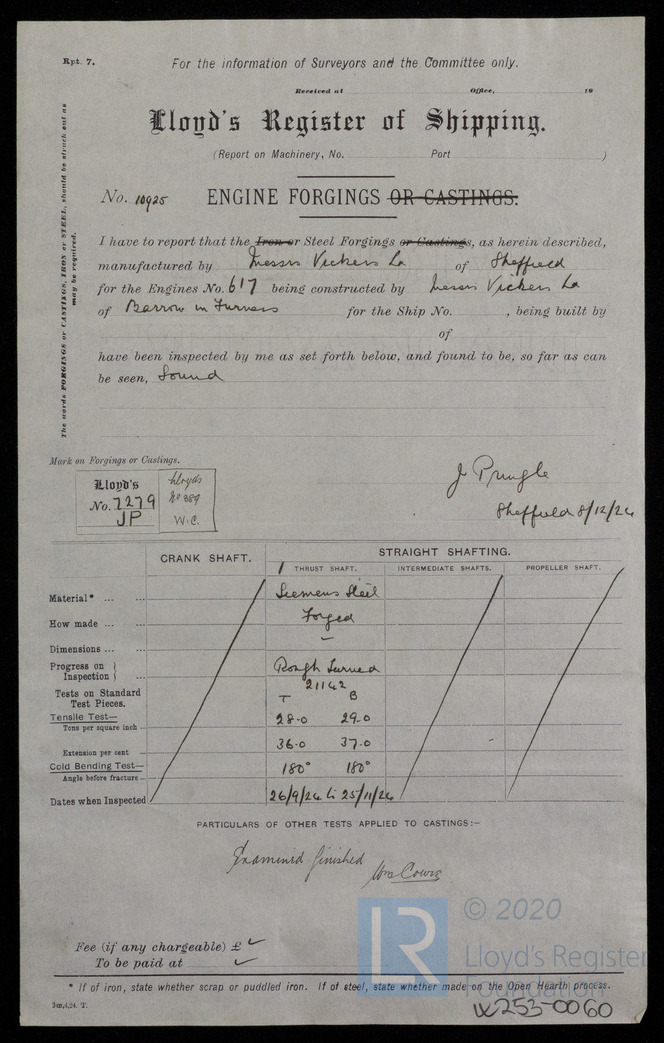 Rpt. 7.
For the information of Surveyors and the Committee only.
Received at Office, 19
Lloyd's Register of Shipping.
(Report on Machinery, No. Port )
No. 10925 ENGINE FORGINGS OR CASTINGS.
The words FORGINGS or CASTINGS, IRON or STEEL, should be struck out as may be required.
I have to report that the Iron or Steel Forgings or Castings, as herein described,
manufactured by Messrs Vickers Ld of Sheffield
for the Engines No. 617 being constructed by Messrs Vickers Ld
of Barrow in Furness for the Ship No. , being built by
of
have been inspected by me as set forth below, and found to be, so far as can
be seen, Sound
Mark on Forgings or Castings.
Lloyd's
No. 7279
JP
Lloyds
No 389
W.C.
J Pringle
Sheffield 8/12/24
CRANK SHAFT. STRAIGHT SHAFTING.
1 THRUST SHAFT. INTERMEDIATE SHAFTS. PROPELLER SHAFT.
Material* ... ... Siemens Steel
How made ... ... Forged
Dimensions ... ... –
Progress on Inspection } ... Rough Turned
Tests on Standard Test Pieces. 21142
T B
Tensile Test—
Tons per square inch – 28.0 29.0
Extension per cent – 36.0 37.0
Cold Bending Test—
Angle before fracture – 180° 180°
Dates when Inspected 26/9/24 to 25/11/24
PARTICULARS OF OTHER TESTS APPLIED TO CASTINGS:–
Examined finished
Wm Cowie
Fee (if any chargeable) £ ✓
To be paid at ✓
* If of iron, state whether scrap or puddled iron. If of steel, state whether made on the Open Hearth process.
LR
© 2020
Lloyd's Register
Foundation
W253-0060